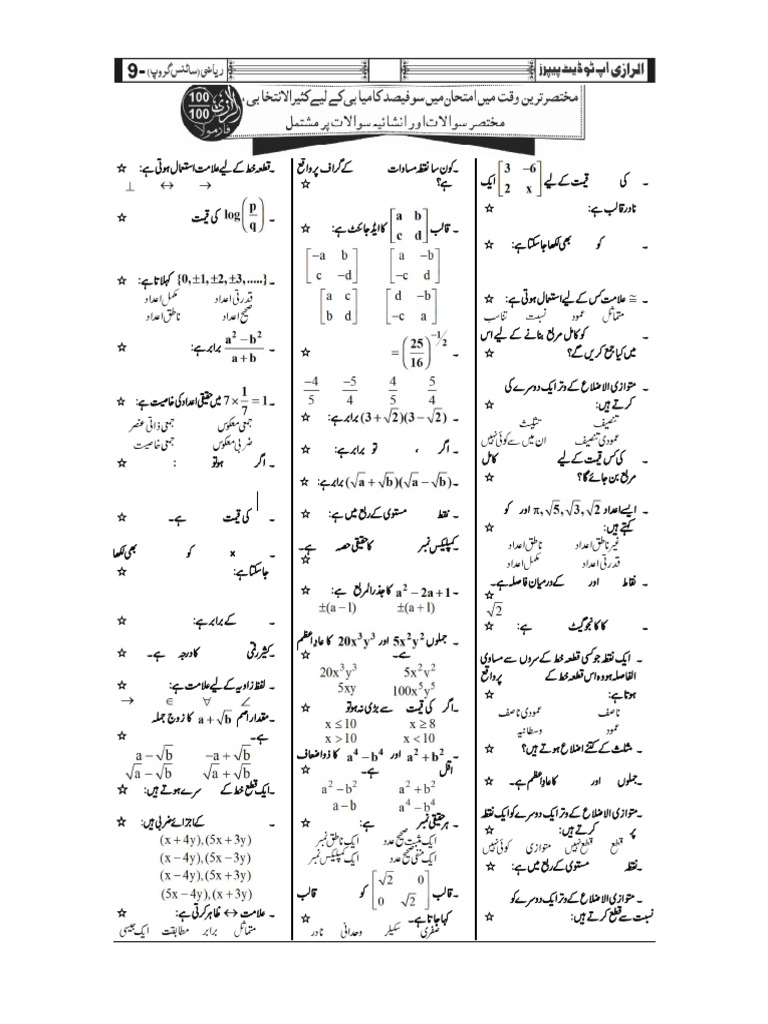 الرازی اَپ ٹو ڈیٹ پیپرز
ریاضی (سائنس گروپ) -9
مختصر ترین وقت میں امتحان میں سو فیصد کامیابی کے لیے کثیر الانتخابی،
مختصر سوالات اور انشائیہ سوالات پر مشتمل
100
100
الرازی
فارمولا
۔ [3 −6 / 2 x] کی قیمت کے لیے ایک
نادر قالب ہے: ☆
۔ کو بھی لکھا جا سکتا ہے: ☆
۔ ≅ علامت کس کے لیے استعمال ہوتی ہے: ☆
متماثل عمود نسبت تناسب
۔ کو کامل مربع بنانے کے لیے اس
میں کیا جمع کریں گے؟ ☆
۔ متوازی الاضلاع کے وتر ایک دوسرے کی
کرتے ہیں: ☆
تنصیف تثلیث
عمودی تنصیف ان میں سے کوئی نہیں
۔ کی کس قیمت کے لیے کامل
مربع بن جائے گا؟ ☆
۔ ایسے اعداد π, √5, √3, √2 اور کو
کہتے ہیں: ☆
غیر ناطق اعداد ناطق اعداد
قدرتی اعداد مکمل اعداد
۔ نقاط اور کے درمیان فاصلہ ہے۔
☆
√2
۔ کا کانجوگیٹ ہے: ☆
۔ ایک نقطہ جو کسی قطعہ خط کے سروں سے مساوی
الفاصلہ ہو وہ اس قطعہ خط کے پر واقع
ہوتا ہے: ☆
ناصف عمودی ناصف
عمود وسطانیہ
۔ مثلث کے کتنے اضلاع ہوتے ہیں؟ ☆
۔ جملوں اور کا عاد اعظم ہے۔ ☆
۔ متوازی الاضلاع کے وتر ایک دوسرے کو ایک نقطہ
پر کرتے ہیں: ☆
قطع قطع نہیں متوازی کوئی نہیں
۔ نقطہ مستوی کے ربع میں ہے: ☆
۔ متوازی الاضلاع کے وتر ایک دوسرے کو
نسبت سے قطع کرتے ہیں: ☆
۔ کون سا نقطہ مساوات کے گراف پر واقع
ہے؟ ☆
۔ قالب [a b / c d] کا ایڈجائنٹ ہے: ☆
[−a b / c −d] [a −b / −c d]
[a c / b d] [d −b / −c a]
۔ (25/16)^(−1/2) = ☆
−4/5 −5/4 4/5 5/4
۔ (3+√2)(3−√2) برابر ہے: ☆
۔ اگر ، تو برابر ہے: ☆
۔ (√a+√b)(√a−√b) برابر ہے: ☆
۔ نقطہ مستوی کے ربع میں ہے: ☆
۔ کمپلیکس نمبر کا حقیقی حصہ ہے۔
☆
۔ a²−2a+1 کا جذر المربع ہے: ☆
±(a−1) ±(a+1)
۔ جملوں 5x²y² اور 20x³y³ کا عاد اعظم
ہے۔ ☆
20x³y³ 5x²y²
5xy 100x⁵y⁵
۔ اگر کی قیمت سے بڑی نہ ہو تو ☆
x ≤ 10 x ≥ 8
x > 10 x < 10
۔ a²+b² اور a⁴−b⁴ کا ذواضعاف
اقل ہے۔ ☆
a²−b² a²+b²
a−b a⁴−b⁴
۔ ہر حقیقی نمبر ہے: ☆
ایک مثبت صحیح عدد ایک ناطق نمبر
ایک منفی صحیح عدد ایک کمپلیکس نمبر
۔ قالب [√2 0 / 0 √2] کو قالب
کہا جاتا ہے۔ ☆
صفری سکیلر وحدانی نادر
۔ قطعہ خط کے لیے علامت استعمال ہوتی ہے: ☆
⊥ ↔ →
۔ log(p/q) کی قیمت ☆
۔ {0, ±1, ±2, ±3, .....} کہلاتا ہے: ☆
قدرتی اعداد مکمل اعداد
صحیح اعداد ناطق اعداد
۔ (a²−b²)/(a+b) برابر ہے: ☆
۔ 7 × 1/7 = 1 میں حقیقی اعداد کی خاصیت ہے: ☆
جمعی معکوس جمعی ذاتی عنصر
ضربی معکوس جمعی خاصیت
۔ اگر ہو تو : ☆
۔ کی قیمت ہے۔ ☆
۔ x کو بھی لکھا
جا سکتا ہے: ☆
۔ کے برابر ہے: ☆
۔ کثیر رقمی کا درجہ ہے۔ ☆
۔ لفظ زاویہ کے لیے علامت ہے: ☆
→ ∈ ∀ ∠
۔ مقدار اصم a+√b کا زوج جملہ
ہے۔ ☆
a−√b −a+√b
√a−√b √a+√b
۔ ایک قطع خط کے سرے ہوتے ہیں: ☆
۔ کے اجزائے ضربی ہیں: ☆
(x+4y),(5x+3y)
(x−4y),(5x−3y)
(x−4y),(5x+3y)
(5x−4y),(x+3y)
۔ علامت ↔ ظاہر کرتی ہے: ☆
متماثل برابر مطابقت ایک جیسی